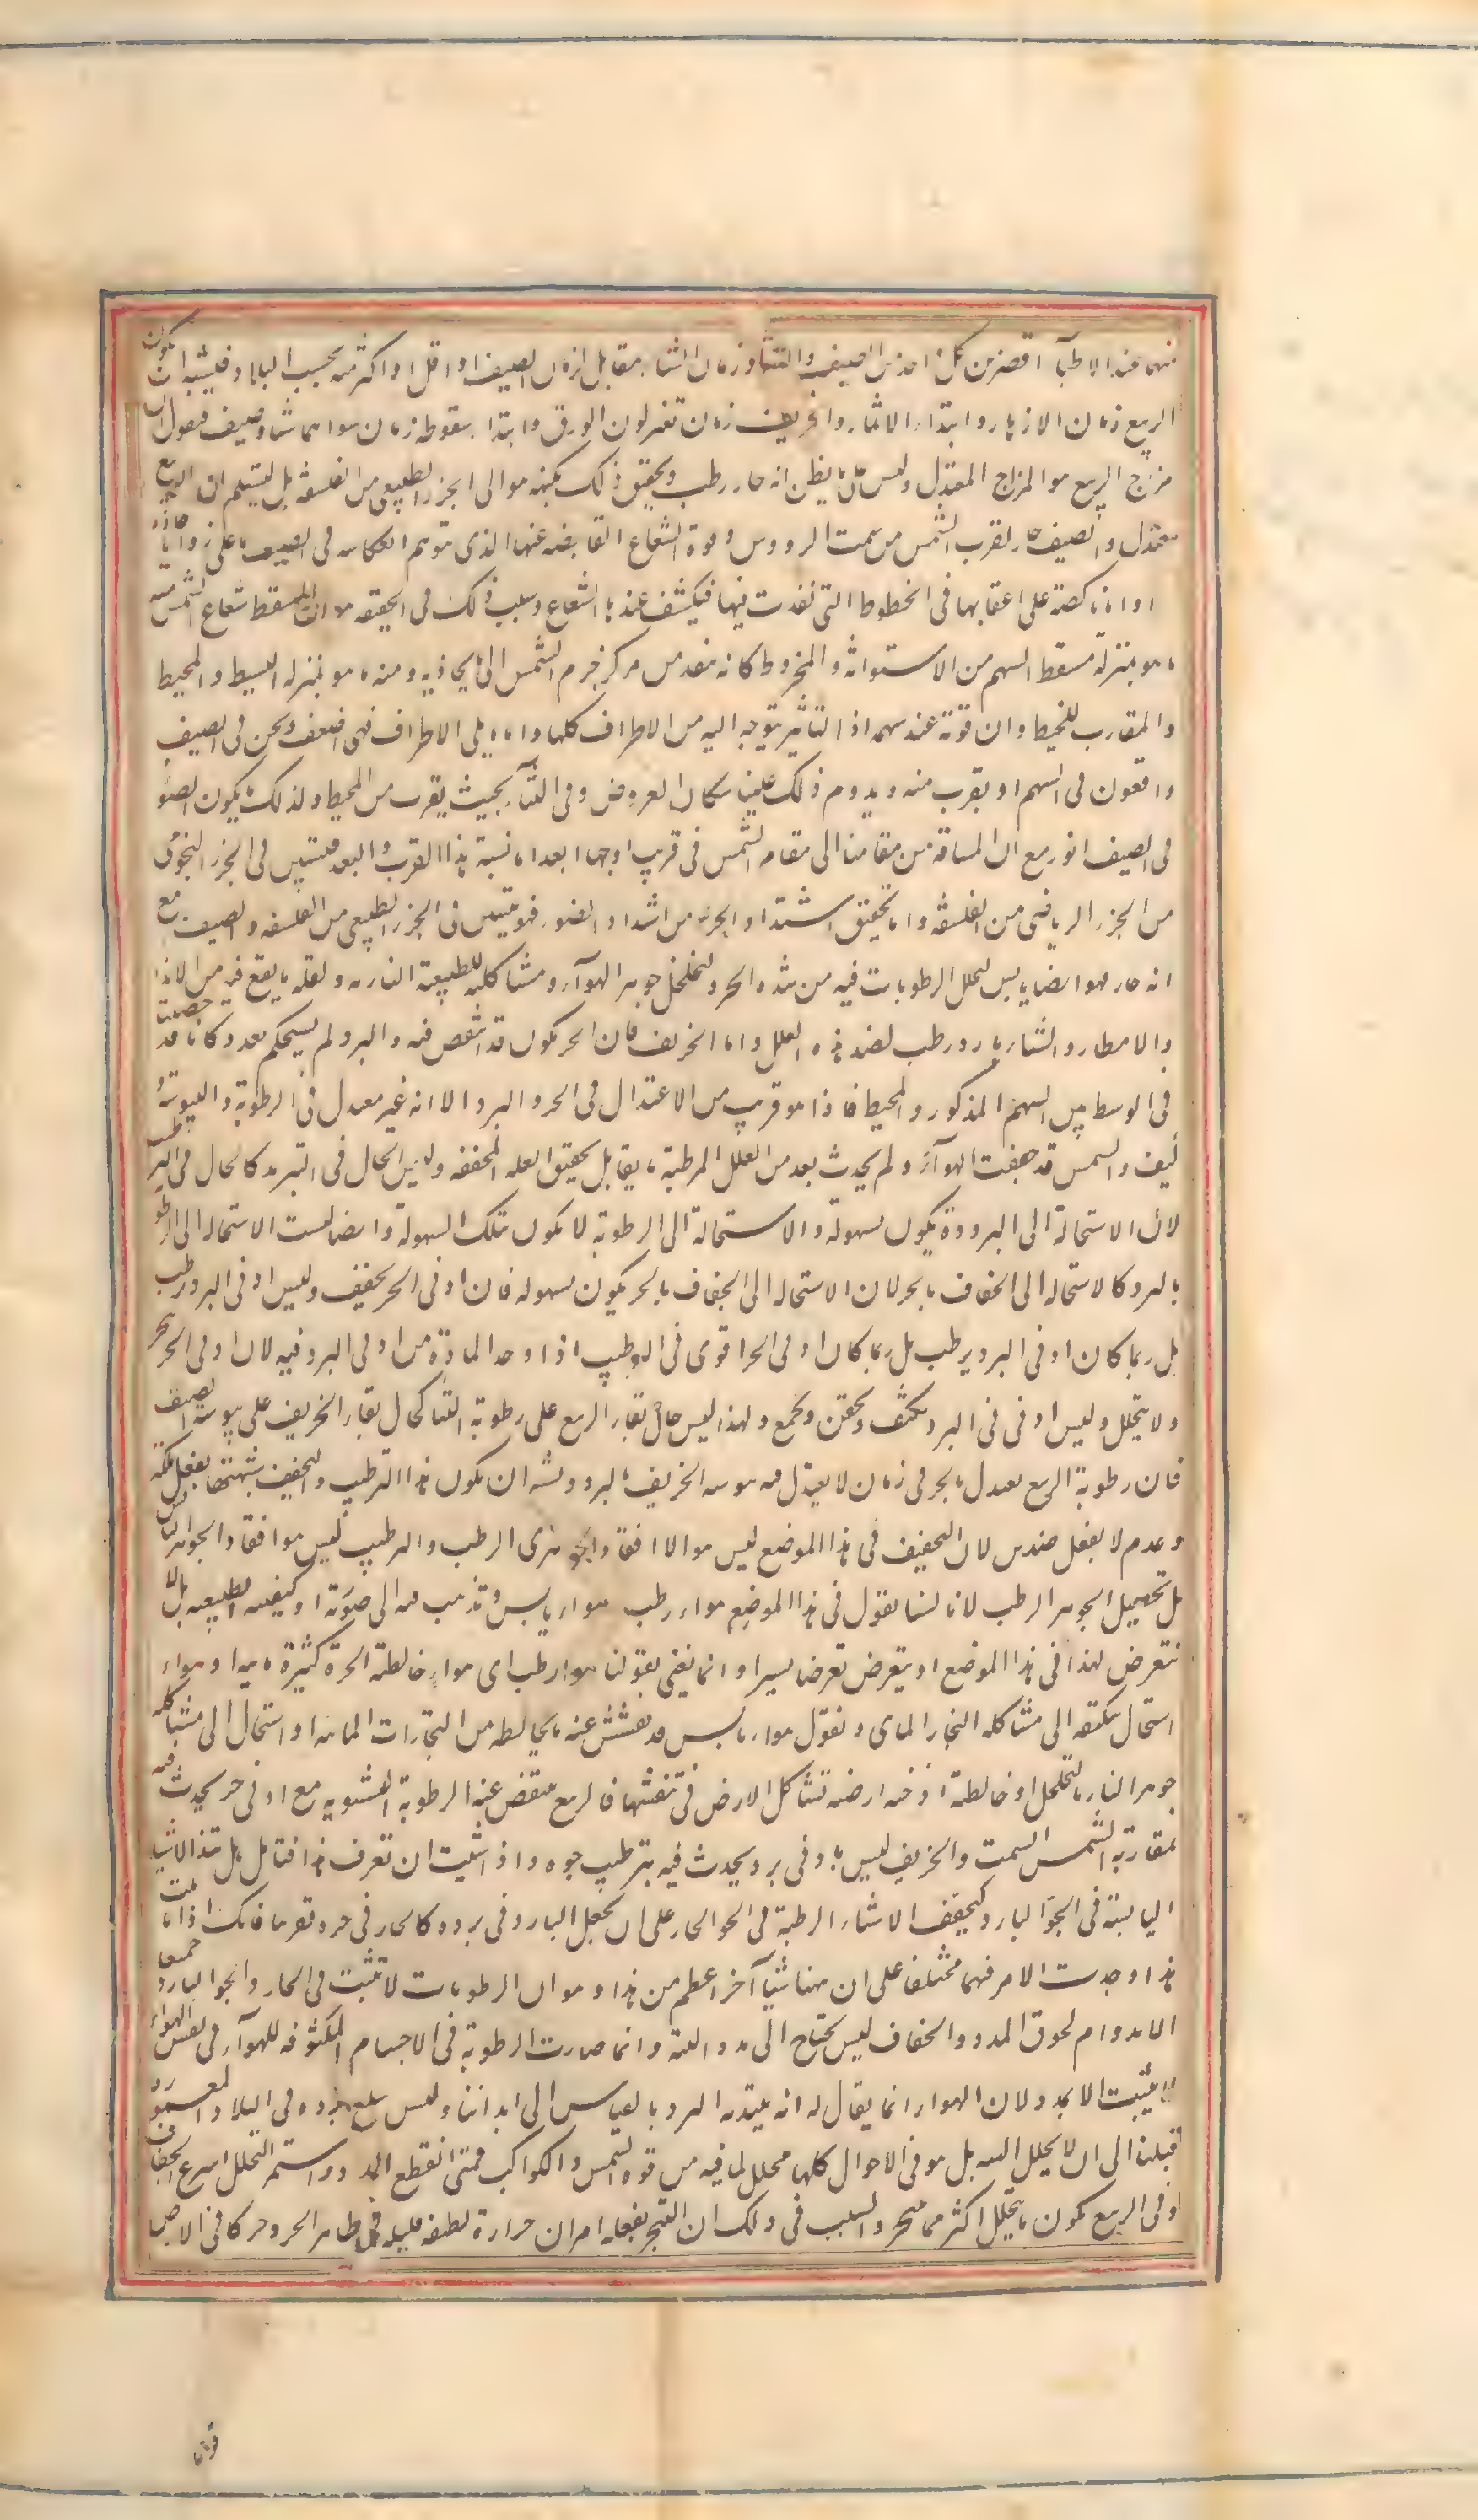 منهما عند الاطباء اقصر من كل واحد من الصيف والشتاء وزمان الشتاء مقابل لزمان الصيف او اقل او اكثر منه بحسب البلاد فيشبه ان يكون
الربيع زمان الازهار وابتداء الاثمار والخريف زمان تغير لون الورق وابتداء سقوطه زمان سواهما شتاء وصيف فنقول ان
مزاج الربيع هو المزاج المعتدل وليس على ما يظن انه حار رطب وتحقيق ذلك بكنهه هو الى الجزء الطبيعي من الفلسفة بل ليتسلم ان الربيع
معتدل والصيف حار لقرب الشمس من سمت الرووس وقوة الشعاع الفايضة عنها الذى يتوهم انعكاسه فى الصيف اما على زوايا حادة
او اما ناكصة على اعقابها فى الخطوط التى نفذت فيها فيكثف عندها الشعاع وسبب ذلك فى الحقيقة هو ان مسقط شعاع الشمس منه
ما هو بمنزلة مسقط السهم من الاستوانة والمخروط كانه ينفذ من مركز جرم الشمس الى ما يحاذيه ومنه ما هو بمنزلة البسيط والمحيط
والمقارب للمحيط وان قوته عند سهمه اذ التاثير يتوجه اليه من الاطراف كلها واما ما يلى الاطراف فهى اضعف ونحن فى الصيف
واقعون فى السهم او بقرب منه ويدوم ذلك علينا سكان العروض وفى الشتاء بحيث يقرب من المحيط ولذلك ما يكون الضوء
فى الصيف انور مع ان المسافة من مقامنا الى مقام الشمس فى قريب اوجها ابعد اما نسبة هذا القرب والبعد فيتبين فى الجزء النجومى
من الجزء الرياضى من الفلسفة واما تحقيق اشتداد الحر من اشتداد الضوء فهو يتبين فى الجزء الطبيعى من الفلسفة والصيف مع
انه حار فهو ايضا يابس لتحلل الرطوبات فيه من شدة الحر ولتخلخل جوهر الهوآء ومشاكلته للطبيعة النارية ولقلة ما يقع فيه من الاندا
والامطار والشتاء بارد رطب لضد هذه العلل واما الخريف فان الحر يكون قد انتقص فيه والبرد لم يستحكم بعد وكانا قد حصلنا
فى الوسط بين السهم المذكور والمحيط فاذا هو قريب من الاعتدال فى الحر والبرد الا انه غير معتدل فى الرطوبة واليبوسة و
كيف والشمس قد جففت الهوآء ولم يحدث بعد من العلل المرطبة ما يقابل تحقيق العلة المجففة وليس الحال فى التبريد كالحال فى الترطيب
لان الاستحالة الى البرودة يكون بسهولة والاستحالة الى الرطوبة لا يكون بتلك السهولة وايضا ليست الاستحالة الى الرطوبة
بالبرد كالاستحالة الى الجفاف بالحر لان الاستحالة الى الجفاف بالحر يكون بسهولة فان ادنى الحر يجفف وليس ادنى البرد يرطب
بل ربما كان ادنى البرد يرطب بل ربما كان ادنى الحر اقوى فى الترطيب اذا وجد المادة من ادنى البرد فيه لان ادنى الحر يبخر
ولا يتحلل وليس ادنى فى البرد يكثف ويحقن ويجمع ولهذا ليس حال بقاء الربيع على رطوبة الشتا كحال بقاء الخريف على يبوسة الصيف
فان رطوبة الربيع يعتدل بالحر فى زمان لا يعتدل فيه يبوسة الخريف بالبرد ويشبه ان يكون هذا الترطيب والتجفيف شبيهتها بفعل ملكة
وعدم لا بفعل ضدين لان التجفيف فى هذا الموضع ليس هو الا افقاد الجوهر الرطب والترطيب ليس هو افقاد الجوهر اليابس
بل تحصيل الجوهر الرطب لانا لسنا نقول فى هذا الموضع هواء رطب هواء يابس ونذهب فيه الى صورته او كيفيته الطبيعية بل لا
نتعرض لهذا فى هذا الموضع او يتعرض تعرضا يسيرا وانما نعنى بقولنا هواء رطب اى هواء خالطته ابخرة كثيرة مايية او هواء
استحال بتكثفه الى مشاكلة البخار المائى ونقول هواء يابس قد تفشش عنه ما يخالطه من البخارات المائية او استحال الى مشاكلة
جوهر النار بالتخلخل او خالطته ادخنة ارضية تشاكل الارض فى تنشفها فالربيع ينتقض عنه الرطوبة الشتوية مع ادنى حر يحدث فيه
لمقاربة الشمس السمت والخريف ليس بادنى برد يحدث فيه يترطب جوه واذا شئت ان تعرف هذا فتامل هل تندى الاشياء
اليابسة فى الجو البارد كتجفيف الاشياء الرطبة فى الجو الحار على ان يجعل البارد فى برده كالحار فى حره تقريبا فانك اذا تاملت
هذا وجدت الامر فيهما مختلفا على ان ههنا شيا آخر اعظم من هذا وهو ان الرطوبات لا تثبت فى الحار والجو البارد جميعا
الا بدوام لحوق المدد والجفاف ليس يحتاج الى مدد البتة وانما صارت الرطوبة فى الاجسام المكشوفة للهوآء وفى نفس الهواء
لا يثبت الا بمدد لان الهواء انما يقال له انه شديد البرد بالقياس الى ابداننا وليس يبلغ برده فى البلاد المعمورة
قبلنا الى ان لا يحلل البتة بل هو فى الاحوال كلها محلل لما فيه من قوة الشمس والكواكب فمتى انقطع المدد واستمر التحلل اسرع الجفاف
وفى الربيع يكون ما يتحلل اكثر مما يتبخر والسبب فى ذلك ان التبخر يفعله امران حرارة لطيفة قليلة فى ظاهر الحر وحر كافى الارض